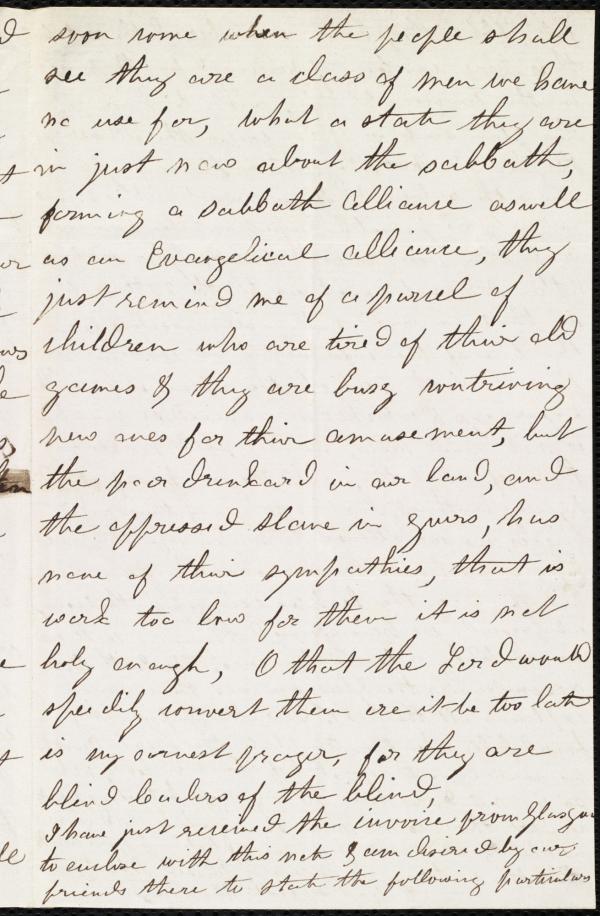 soon come when the people shall
see they are a class of men we have
no use for, what a state they are
in just now about the sabbath,
forming a sabbath alliance aswell
as an Evangelical alliance, they
just remind me of a parcel of
children who are tired of their old
games & they are busy contriving
new ones for their amusement, but
the poor drunkard in our land, and
the oppressed slave in yours, has
none of their sympathies, that is
work too low for them it is not
holy enough, O that the Lord would
speedily convert them ere it be too late
is my earnest prayer, for they are
blind leaders of the blind,
I have just received the invoice from Glasgow
to enclose with this note & am desired by our
friends there to state the following particulars